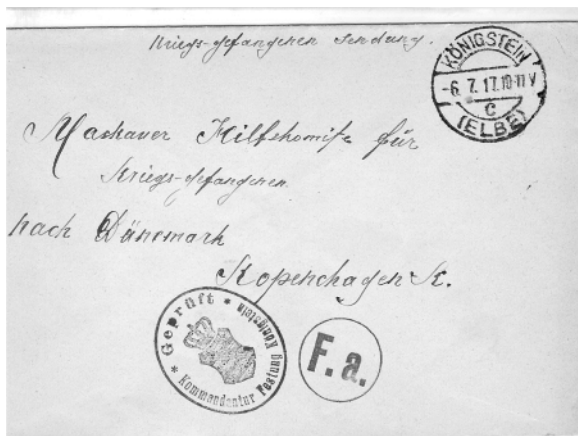 Kriegs-gefangenen Sendung.
KÖNIGSTEIN
-6.7.17.10-11V
c
(ELBE)
Maskauer Hilfskomite für
Kriegs-gefangenen
nach Dänemark
Kopenchagen K.
* Geprüft *
Kommandantur Festung Königstein
F.a.